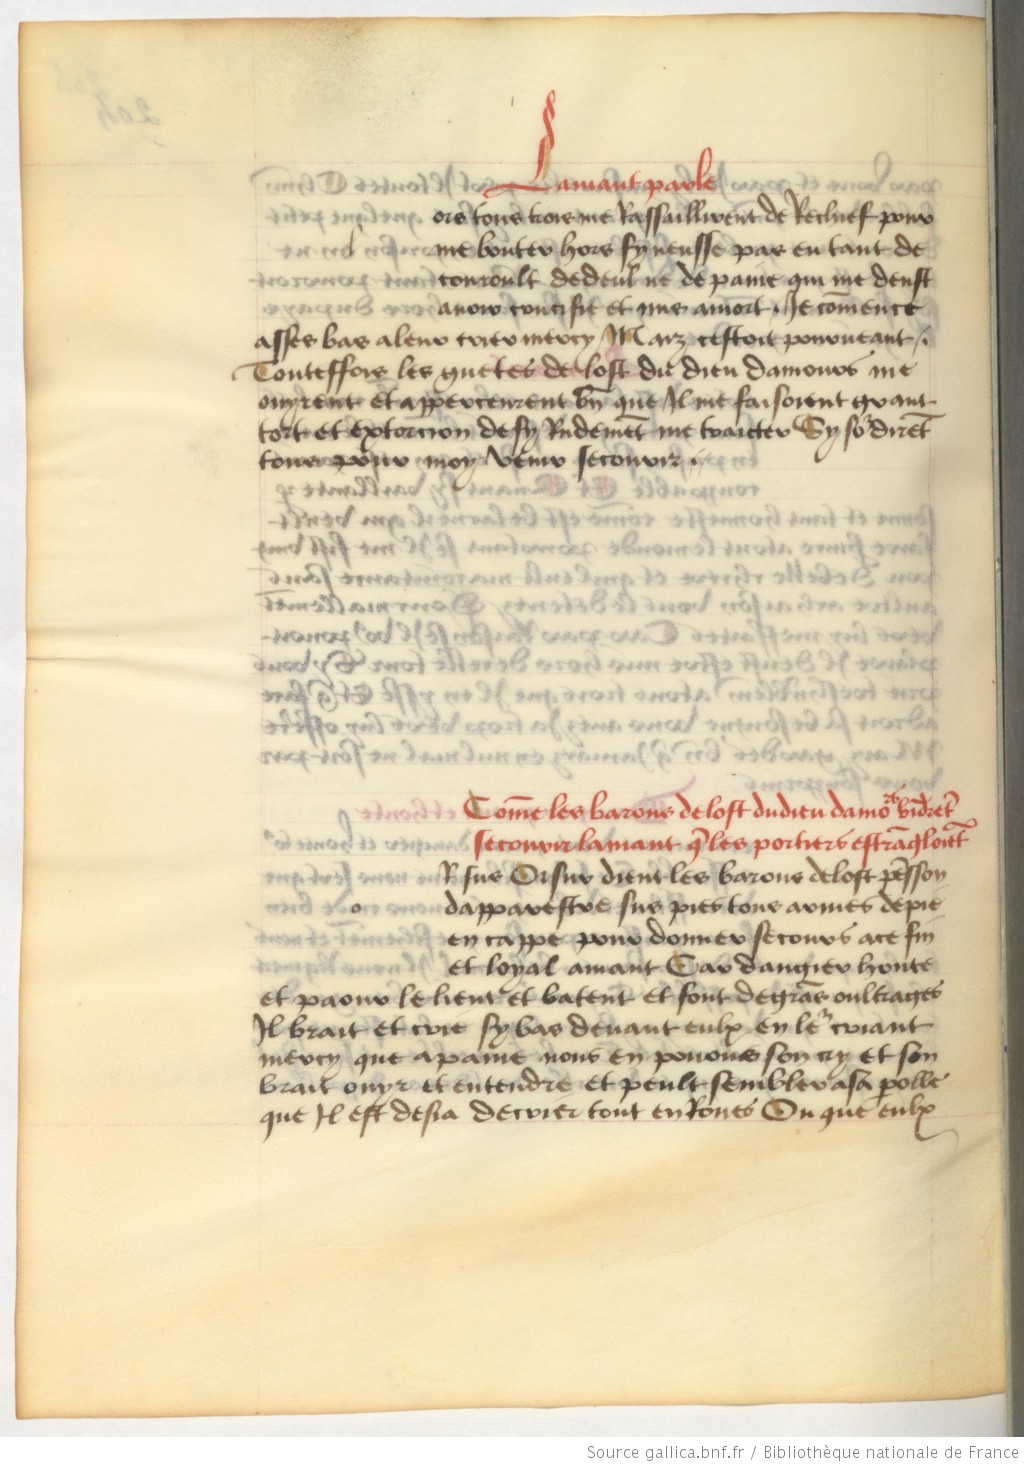 Lamant parle
ors tous trois me Rassaillirent de Rechief pour
me bouter hors sy neusse pas eu tant de
couroult dedeul ne de paine qui me deust
auoir crucifie et mis amort. Je cōmence
asses bas aleur crier mercy Maiz cestoit pourueant.
Touteffois les guetes de lost du dieu damours me
ouyrent et apperceurent bn̄ que Il me faisoient grant
tort et extorcion de sy Rudemēt me traicter Sy so' dirēt
tous pour moy venir secourir.
Cōme les barons delost dudieu damo's vīdrēt
secourir lamant q̄ les portiers estrāgloiēt
R sus Or sus dient les barons delost pēsson
dapparestre sus pies tous armes de pie
o
en cappe pour donner secours ace fin
et loyal amant Car dangier honte
et paour le lient et batent et font degrās oultrages
Il brait et crie sy bas deuant eulx en le' criant
mercy que apaine nous en pouons son cry et son
brait ouyr et entendre et peult sembler asa polle
que Il est desia decrier tout enRoues Ou que eulx
Source gallica.bnf.fr / Bibliothèque nationale de France